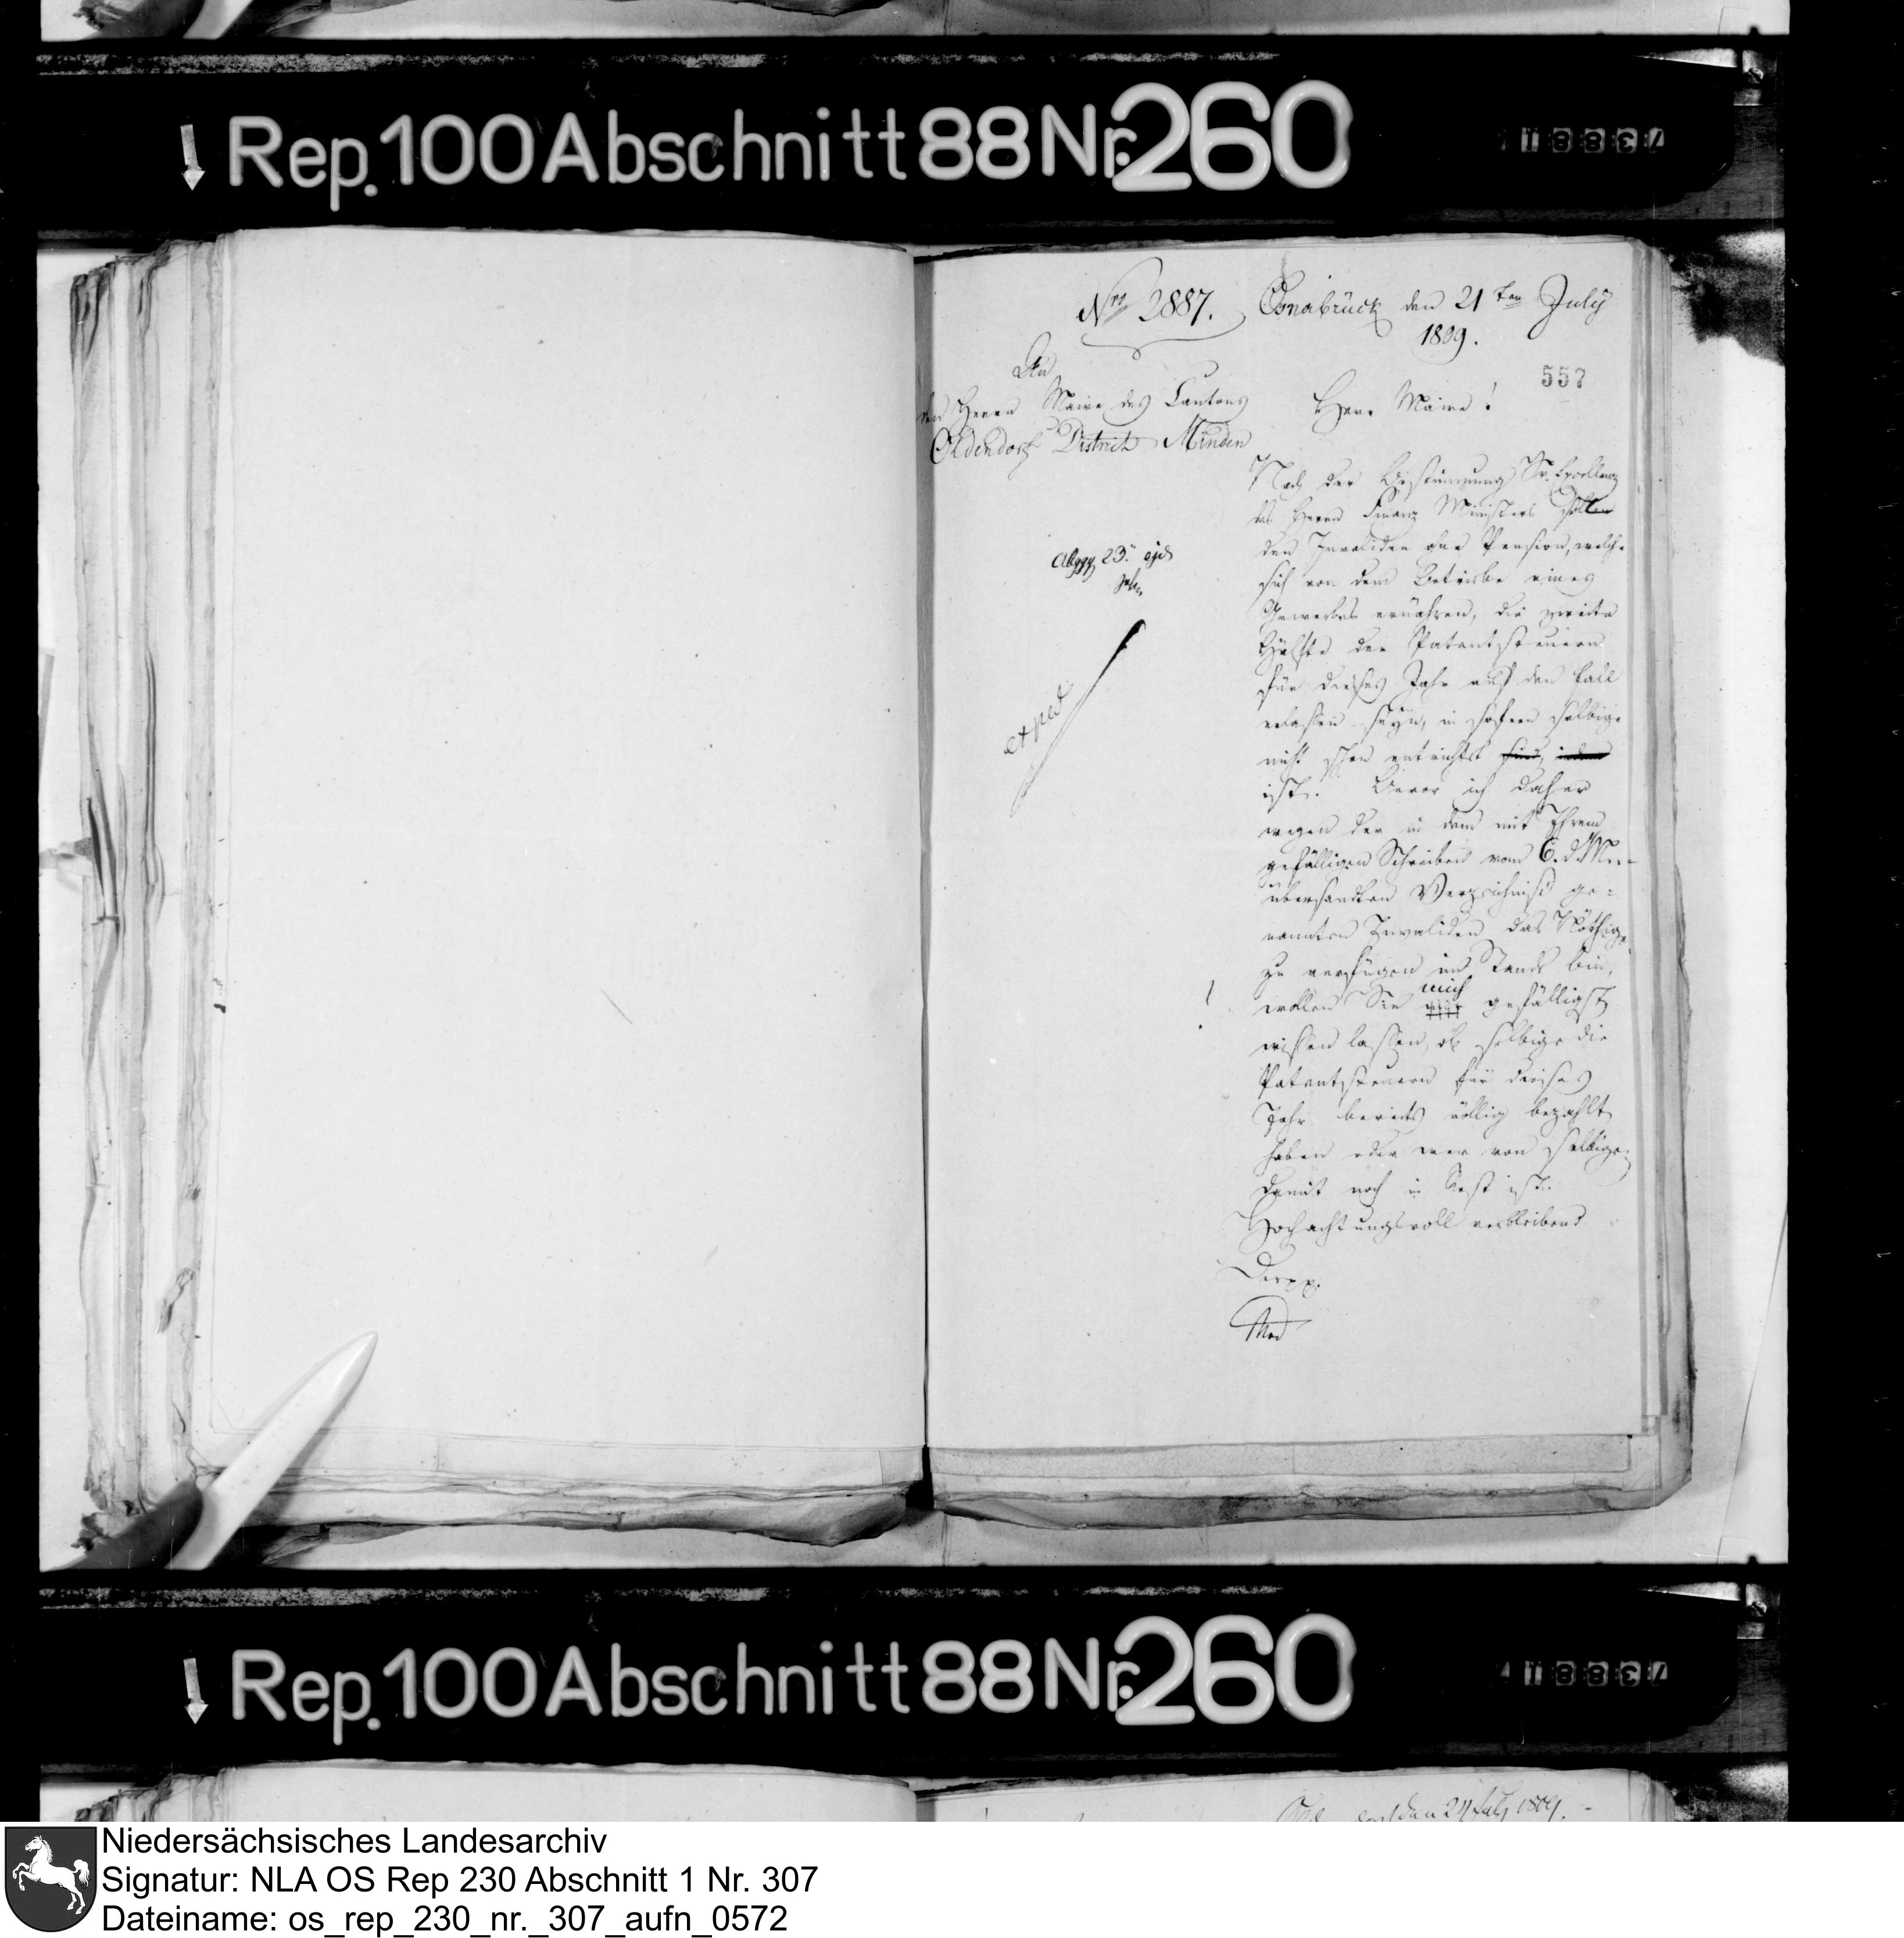 Rep. 100 Abschnitt 88 Nr. 260
73881
Nro 2887.
Osnabrück den 21ten July
1809.
557
An
den Herrn Maire des Cantons
Oldendorf District Minden
Herr Maire!
Nach der Bestimmung Sr. Excellenz
des Herrn Finanz Ministers sollen
den Invaliden ohne Pension, welche
sich von dem Betriebe eines
Gewerbes ernähren, die zweite
Hälfte der Patentsteuern
für dieses Jahr auf den Fall
erlassen seyn, in sofern selbige
nicht schon entrichtet sind,
ist. Bevor ich daher
wegen der in dem mit Ihrem
gefälligen Schreiben vom 6. d. M.
übersandten Verzeichniß ge=
nannten Invaliden das Nöthige
zu verfügen im Stande bin,
wollen Sie mir mich gefälligst
wissen lassen, ob selbige die
Patentsteuern für dieses
Jahr bereits völlig bezahlt
haben oder wer von selbigen
damit noch in Rest ist.
Hochachtungsvoll verbleibend
Der pp.
Abgg 23. ejd
exped
!
July 1809.
Rep. 100 Abschnitt 88 Nr. 260
73881
Niedersächsisches Landesarchiv
Signatur: NLA OS Rep 230 Abschnitt 1 Nr. 307
Dateiname: os_rep_230_nr._307_aufn_0572